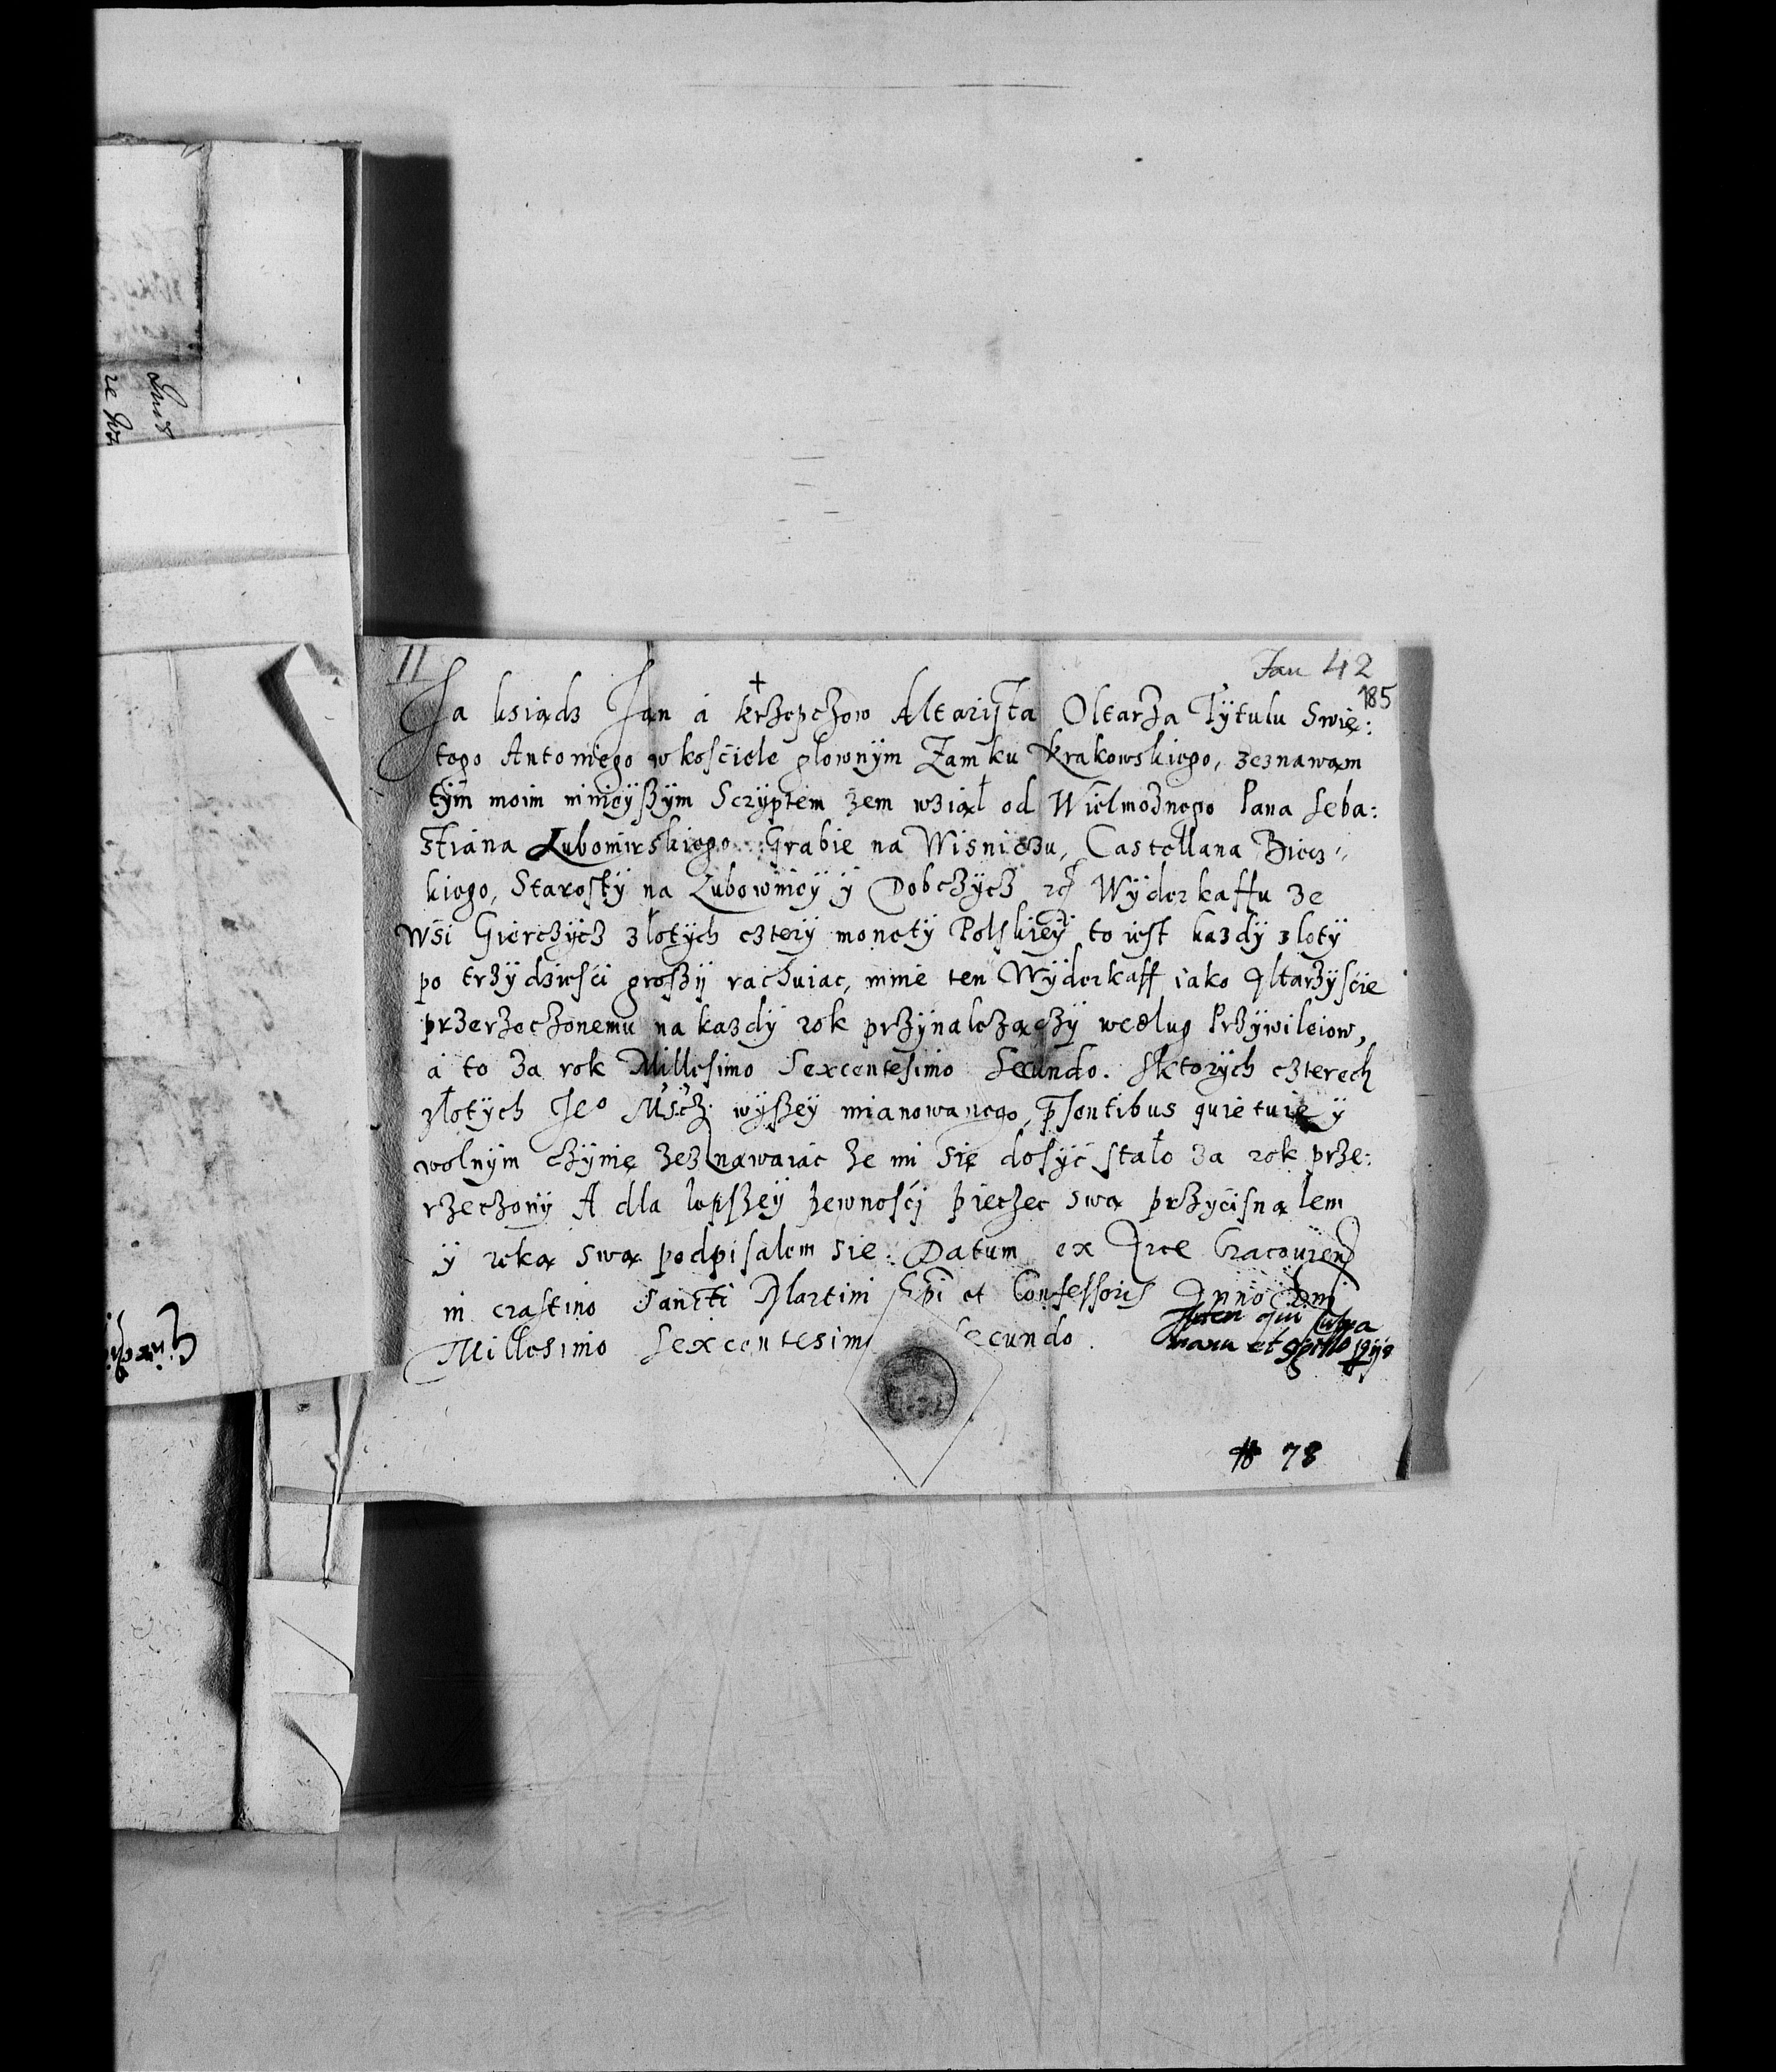 11
Jan 42
185
+
Ja ksiądz Jan à Krzepczow Altarysta Oltarza Tytulu Swię:
tego Antoniego w kościele glownym Zamku Krakowskiego, zeznawam
tym moim ninieyszym Scryptem żem wziął od Wielmożnego Pana Seba:
stiana Lubomirskiego Grabie na Wisniczu, Castellana Biecz
kiego, Starosty na Lubowniey y Dobczycz Wyderkaffu ze
wsi Gierczycz złotych cztery monety Polskiey to iest kazdy zloty
po trzydziesci groszy rachuiac, mnie ten Wyderkaff iako Altarzyscie
przerzeczonemu na kazdy rok przynalezaczy wedlug Przywileiow,
à to za rok Millesimo Sexcentesimo Secundo. Sktorych czterech
złotych Jeo Mscz wyszey mianowanego, pñtibus quietuię y
wolnym czynię zeznawaiąc że mi się dosyć stało za rok prze:
rzeczony A dla lepszey pewności pieczec swą przycisnąlem
y ręką swą podpisalem się. Datum ex Arce Cracovien
in crastino Sancti Martini Epi et Confessoris Anno Dni
Millesimo Sexcentesimo Secundo.
Idem qui supra
manu et sigillo
78